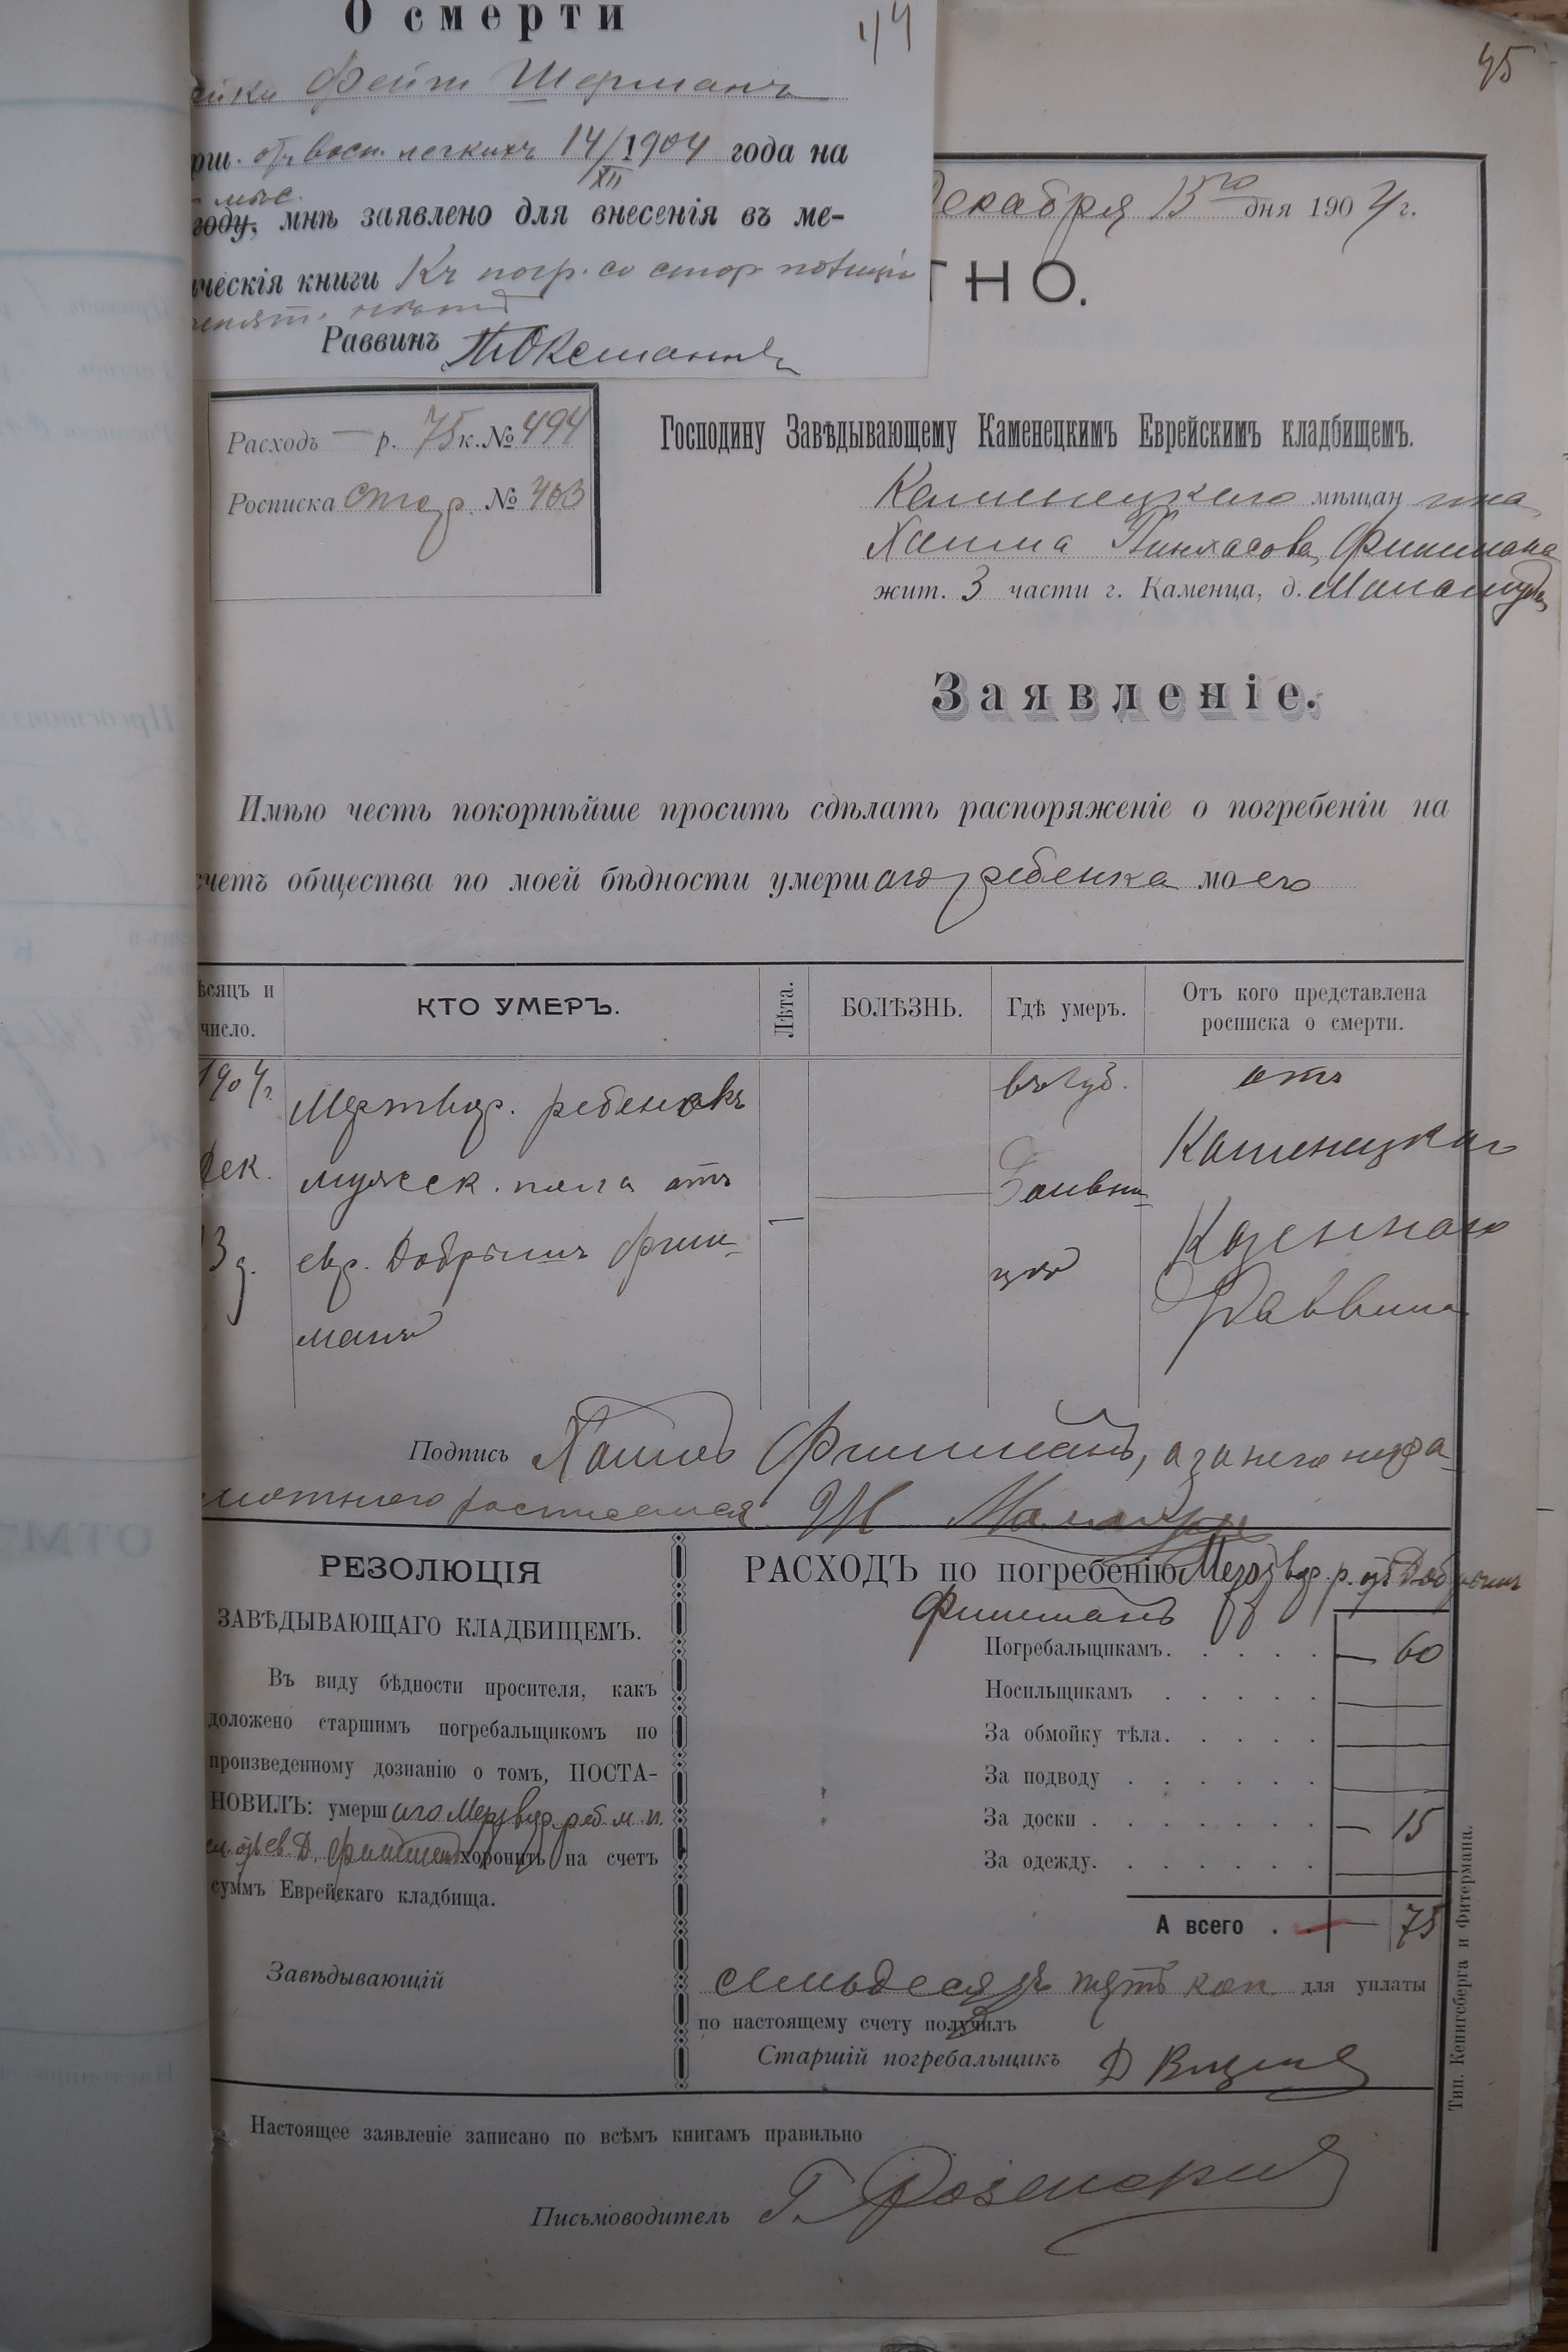 О смерти
44
45
Фейги Шерманъ
отъ восп. легкихъ 14/XII 1904 года на
мѣс.
году, мнѣ заявлено для внесенія въ ме-
ческія книги Къ погр. со стор. полиціи
Раввинъ
Декабря 13го дня 1904 г.
ТНО.
Расходъ — р. 75 к. № 494
Росписка стар. № 403
Господину Завѣдывающему Каменецкимъ Еврейскимъ кладбищемъ.
Каменецкаго мѣщанина
Хаима Пинхасова Фишмана
жит. 3 части г. Каменца, д.
Заявленіе.
Имѣю честь покорнѣйше просить сдѣлать распоряженіе о погребеніи на
счетъ общества по моей бѣдности умершаго ребенка моего
ѣсяцъ и число.
КТО УМЕРЪ.
Лѣта.
БОЛѢЗНЬ.
Гдѣ умеръ.
Отъ кого представлена росписка о смерти.
1904 г.
Дек.
13 д.
Мертвор. ребенокъ
мужеск. пола отъ
евр. Добрышъ Фиш-
манъ
—
въ губ.
отъ
Каменецкаго
Казеннаго
Раввина
Подпись Хаимъ Фишманъ, а за него негра-
мотнаго росписался М.
РЕЗОЛЮЦІЯ
ЗАВѢДЫВАЮЩАГО КЛАДБИЩЕМЪ.
Въ виду бѣдности просителя, какъ
доложено старшимъ погребальщикомъ по
произведенному дознанію о томъ, ПОСТА-
НОВИЛЪ: умершаго Мертвор. реб. м. п.
отъ ев. Д. Фишманъ хоронить на счетъ
суммъ Еврейскаго кладбища.
Завѣдывающій
РАСХОДЪ по погребенію Мертвор. р. отъ Добрышъ
Фишманъ
Погребальщикамъ. — 60
Носильщикамъ —
За обмойку тѣла. —
За подводу —
За доски — 15
За одежду. —
А всего — 75
семьдесятъ пять коп. для уплаты
по настоящему счету получилъ
Старшій погребальщикъ Д
Настоящее заявленіе записано по всѣмъ книгамъ правильно
Письмоводитель Г.
Тип. Кенигсберга и Фитермана.